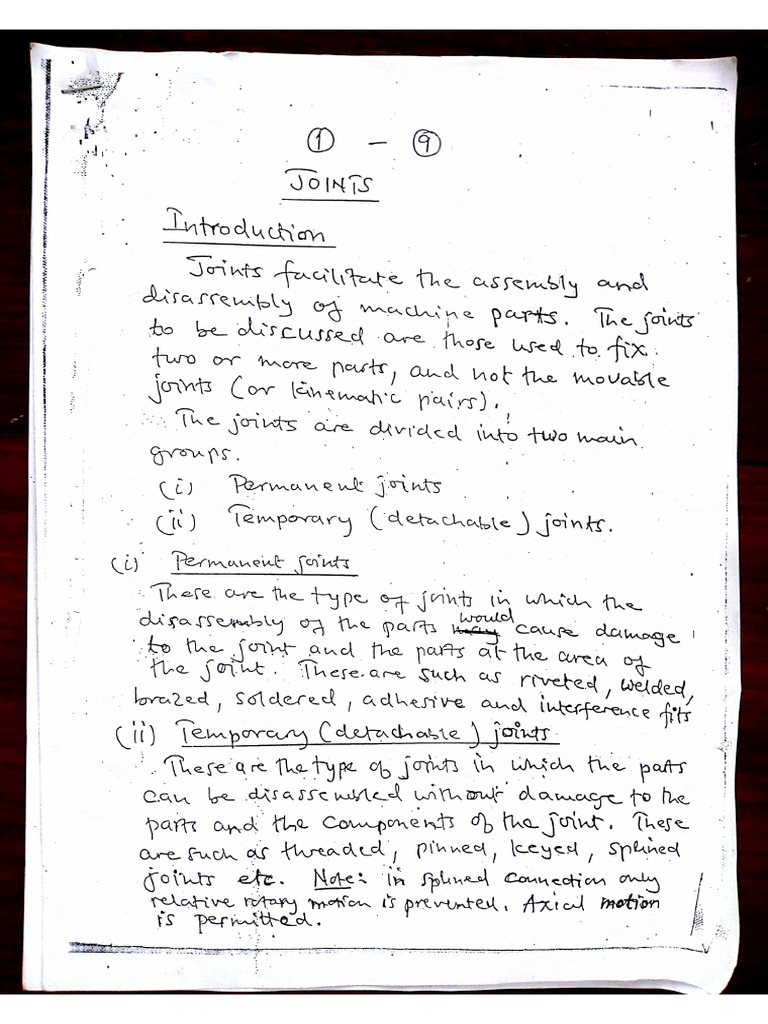 ① - ⑨
JOINTS
Introduction
Joints facilitate the assembly and
disassembly of machine parts. The joints
to be discussed are those used to fix
two or more parts, and not the movable
joints (or kinematic pairs).
The joints are divided into two main
groups.
(i) Permanent joints
(ii) Temporary (detachable) joints.
(i) Permanent joints
These are the type of joints in which the
disassembly of the parts may would cause damage
to the joint and the parts at the area of
the joint. These are such as riveted, welded,
brazed, soldered, adhesive and interference fits
(ii) Temporary (detachable) joints
These are the type of joints in which the parts
can be disassembled without damage to the
parts and the components of the joint. These
are such as threaded, pinned, keyed, splined
joints etc. Note: in splined connection only
relative rotary motion is prevented. Axial motion
is permitted.